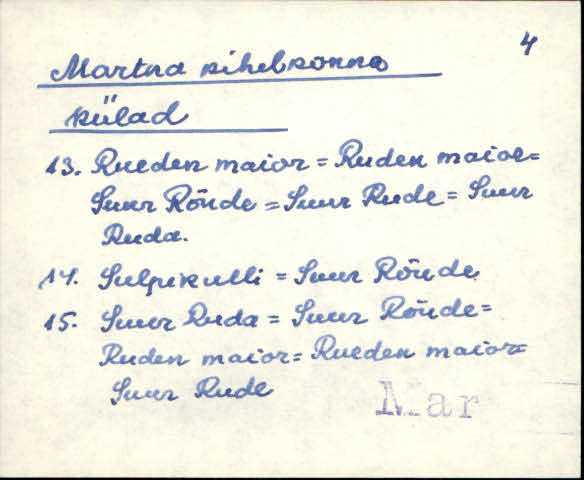 4
Martna kihelkonna
külad
13. Rueden maior = Ruden maior =
Suur Rõude = Suur Rude = Suur
Ruda.
14. Sulpikulli = Suur Rõude
15. Suur Ruda = Suur Rõude =
Ruden maior = Rueden maior =
Suur Rude
Mar